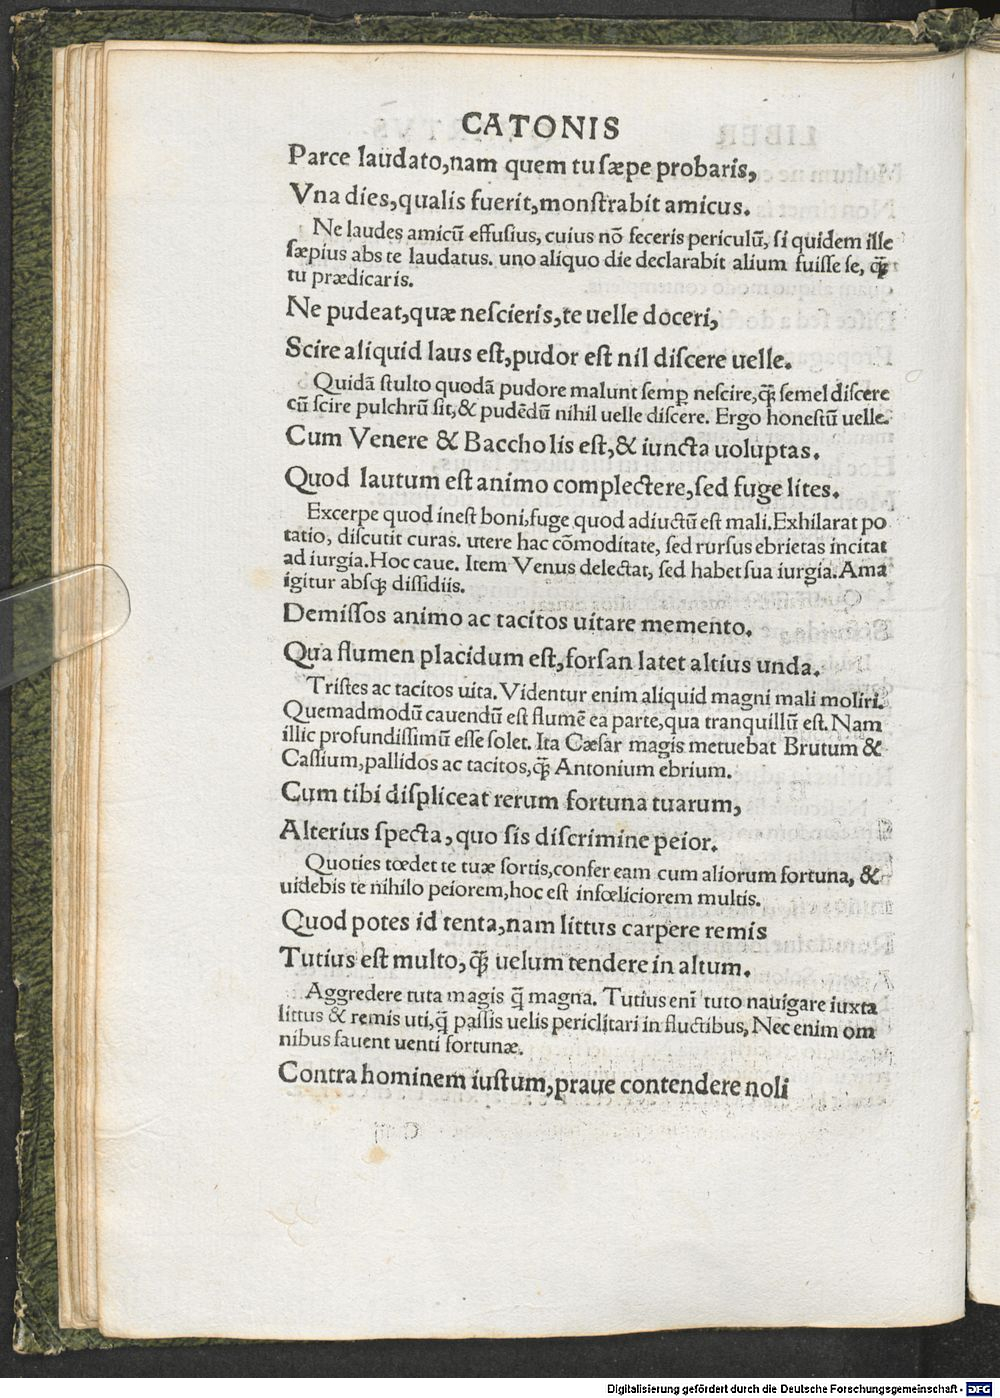 CATONIS
Parce laudato,nam quem tu sæpe probaris,
Vna dies,qualis fuerit,monstrabit amicus.
Ne laudes amicũ effusius, cuius nõ feceris periculũ, si quidem ille
sæpius abs te laudatus. uno aliquo die declarabit alium fuisse se, q̃
tu prædicaris.
Ne pudeat,quæ nescieris,te uelle doceri,
Scire aliquid laus est,pudor est nil discere uelle.
Quidã stulto quodã pudore malunt semꝑ nescire,q̃ semel discere
cũ scire pulchrũ sit,& pudẽdũ nihil uelle discere. Ergo honestũ uelle.
Cum Venere & Baccho lis est,& iuncta uoluptas.
Quod lautum est animo complectere,sed fuge lites.
Excerpe quod inest boni,fuge quod adiuctũ est mali.Exhilarat po
tatio, discutit curas. utere hac cõmoditate, sed rursus ebrietas incitat
ad iurgia.Hoc caue. Item Venus delectat, sed habet sua iurgia.Ama
igitur absqꝫ dissidiis.
Demissos animo ac tacitos uitare memento.
Qua flumen placidum est,forsan latet altius unda.
Tristes ac tacitos uita.Videntur enim aliquid magni mali moliri.
Quemadmodũ cauendũ est flumẽ ea parte,qua tranquillũ est.Nam
illic profundissimũ esse solet. Ita Cæsar magis metuebat Brutum &
Cassium,pallidos ac tacitos,q̃ Antonium ebrium.
Cum tibi displiceat rerum fortuna tuarum,
Alterius specta,quo sis discrimine peior.
Quoties tœdet te tuæ sortis,confer eam cum aliorum fortuna, &
uidebis te nihilo peiorem,hoc est infœliciorem multis.
Quod potes id tenta,nam littus carpere remis
Tutius est multo,q̃ uelum tendere in altum.
Aggredere tuta magis q̃ magna. Tutius enĩ tuto nauigare iuxta
littus & remis uti,q̃ passis uelis periclitari in fluctibus, Nec enim om
nibus fauent uenti fortunæ.
Contra hominem iustum,praue contendere noli
Digitalisierung gefördert durch die Deutsche Forschungsgemeinschaft - DFG